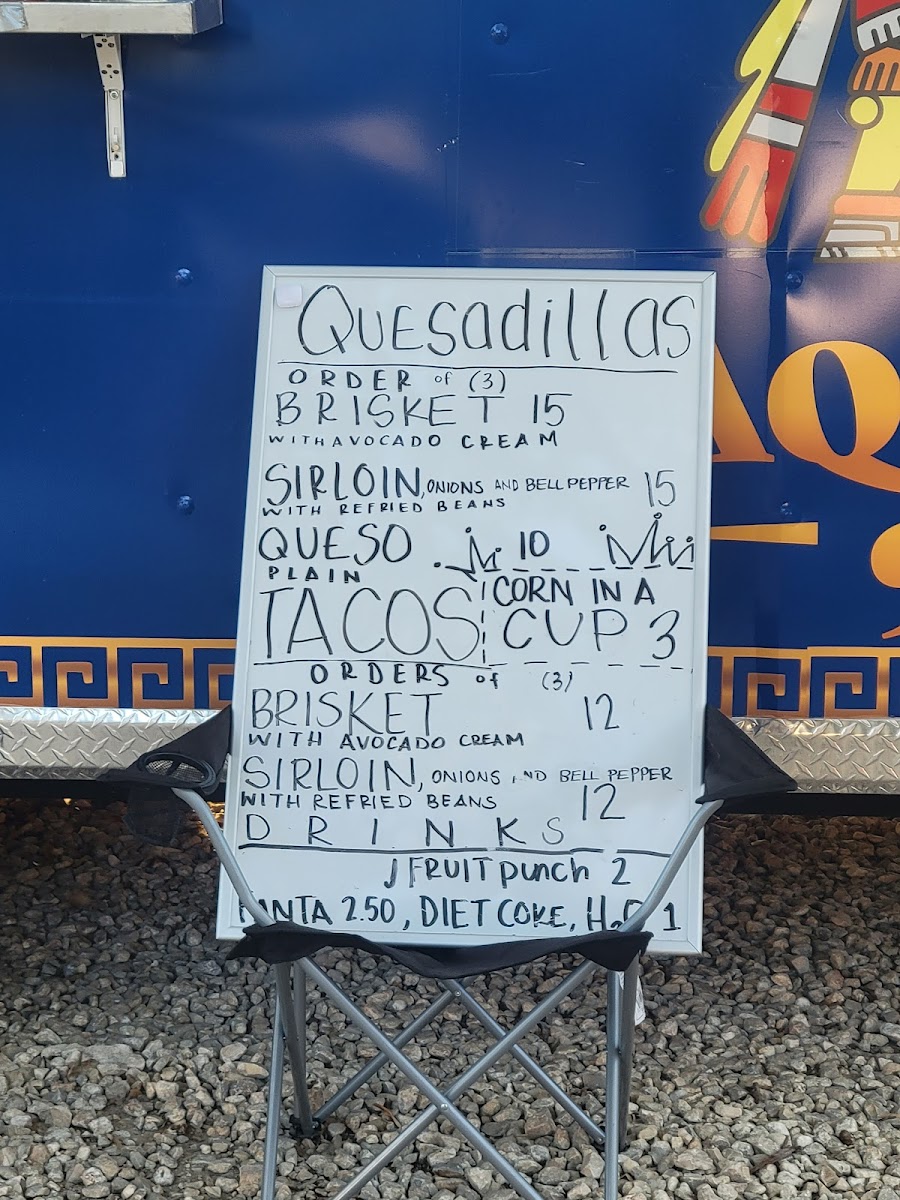 Quesadillas
ORDER of (3)
BRISKET 15
WITH AVOCADO CREAM
SIRLOIN, ONIONS AND BELL PEPPER 15
WITH REFRIED BEANS
QUESO 10
PLAIN
TACOS
CORN IN A
CUP 3
ORDERS of (3)
BRISKET 12
WITH AVOCADO CREAM
SIRLOIN, ONIONS AND BELL PEPPER
WITH REFRIED BEANS 12
DRINKS
FRUIT punch 2
FANTA 2.50, DIET COKE, H2O 1
AQ